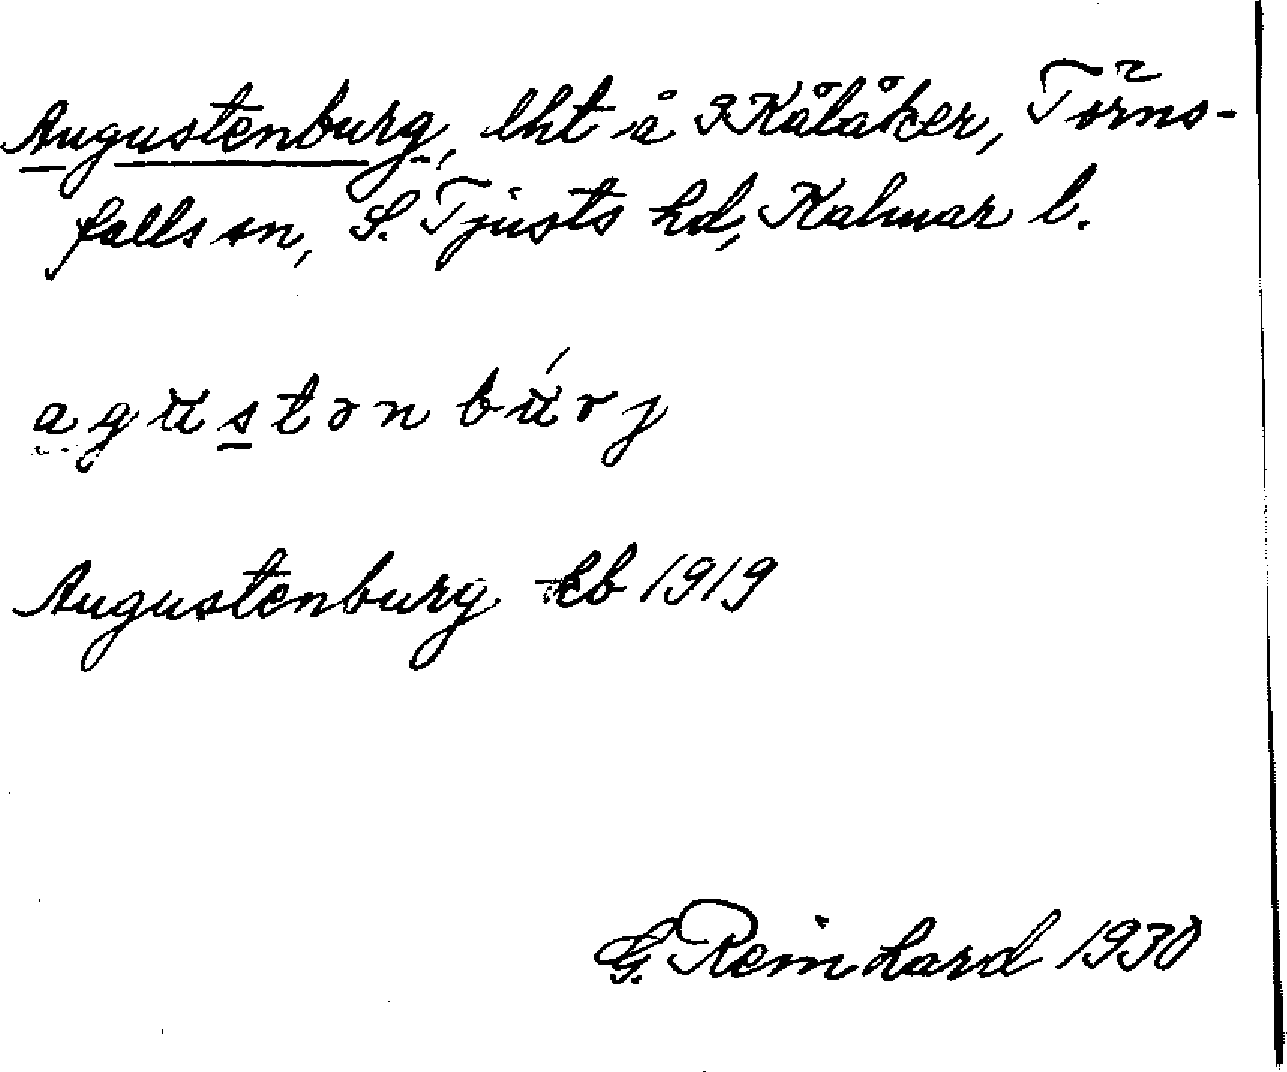 Augustenburg, lht å Kålåker, Törns-
falls sn, S. Tjusts hd, Kalmar l.
agŭstən bŭ́rj
Augustenburg kb 1919
G. Reinhard 1930